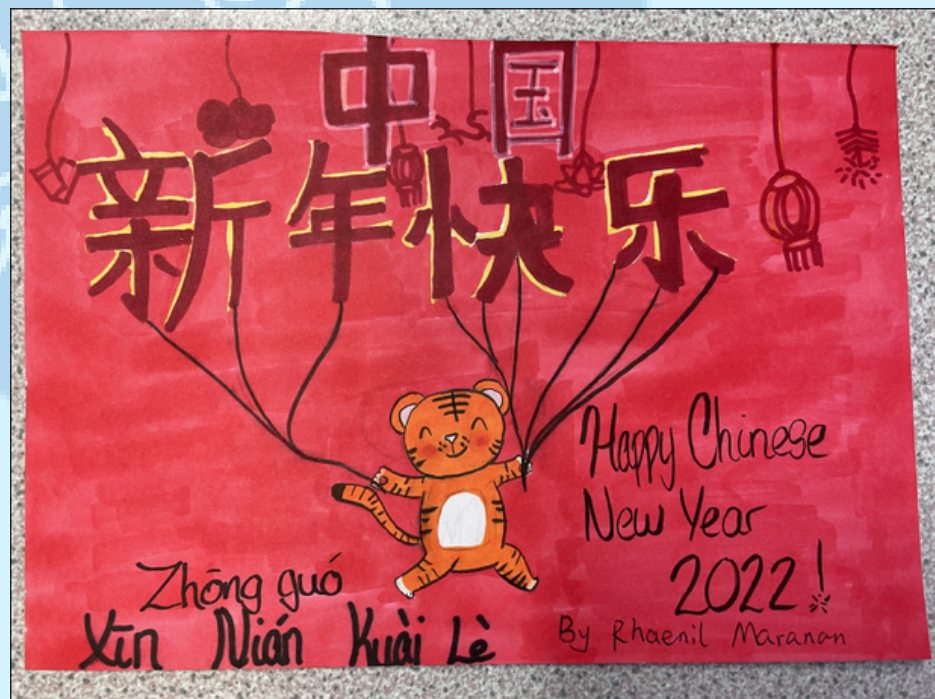 中国
新年快乐
Happy Chinese
New Year
2022!
Zhōng guó
Xīn Nián Kuài Lè
By Rhaenil Maranan